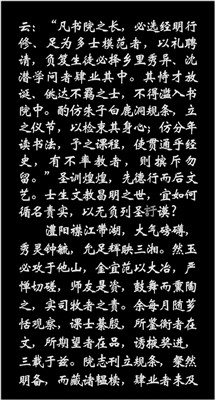 云：“凡书院之长，必选经明行
修、足为多士模范者，以礼聘
请，负笈生徒必择乡里秀异、沈
潜学问者肄业其中。其恃才放
诞、佻达不羁之士，不得滥入书
院中。酌仿朱子白鹿洞规条，立
之仪节，以检束其身心；仿分年
读书法，予之课程，使贯通乎经
史，有不率教者，则摈斥勿
留。”圣训煌煌，先德行而后文
艺。士生文教昌明之世，宜如何
循名责实，以无负列圣訏谟？
澧阳襟江带湖，大气磅礴，
秀灵钟毓，允足辉映三湘。然玉
必攻于他山，金宜范以大冶，严
惮切磋，师友是资，鼓舞而熏陶
之，实司牧者之责。余每月随
恬观察，课士綦殷，所鉴衡者在
文，所期望者在品，诱掖奖进，
三载于兹。院志刊立规条，粲然
明备，而藏诸韫椟，肄业者未及